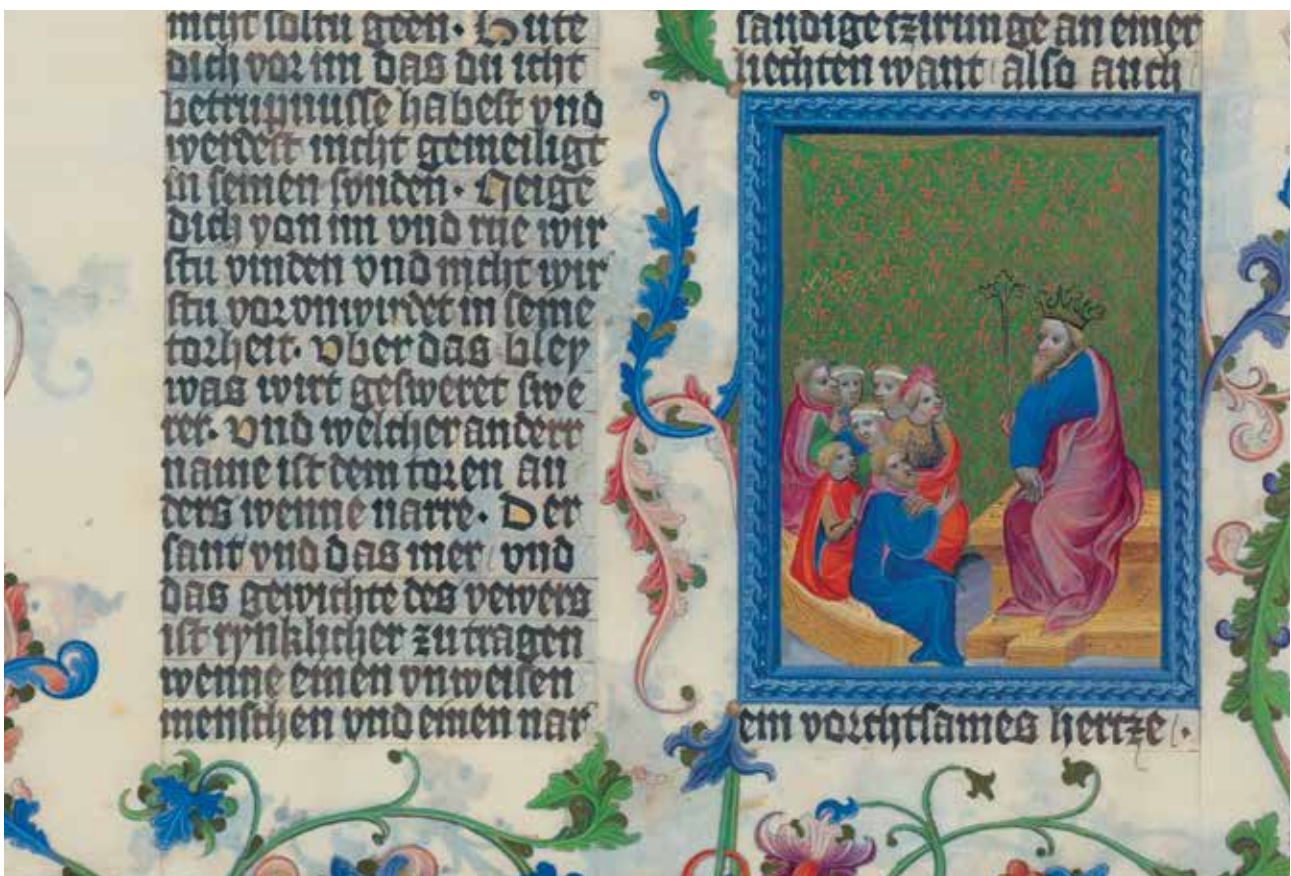 nicht soltu geen. Hute
dich vor im das du icht
betrupnusse habest vnd
werdest nicht gemeiligt
in seinen synden. Neige
dich von im vnd rue wir
stu vinden vnd nicht wir
stu vorvnwirdet in seine
torheit. Vber das bley
was wirt gesweret swe
rer. Vnd welcher anderr
name ist dem toren an
ders wenne narre. Der
sant vnd das mer vnd
das gewichte des vewers
ist rynklicher zu tragen
wenne einen vnweisen
menschen vnd einen nar
sandige tzirunge an einer
liechten want also auch
ein vorchtsames hertze.